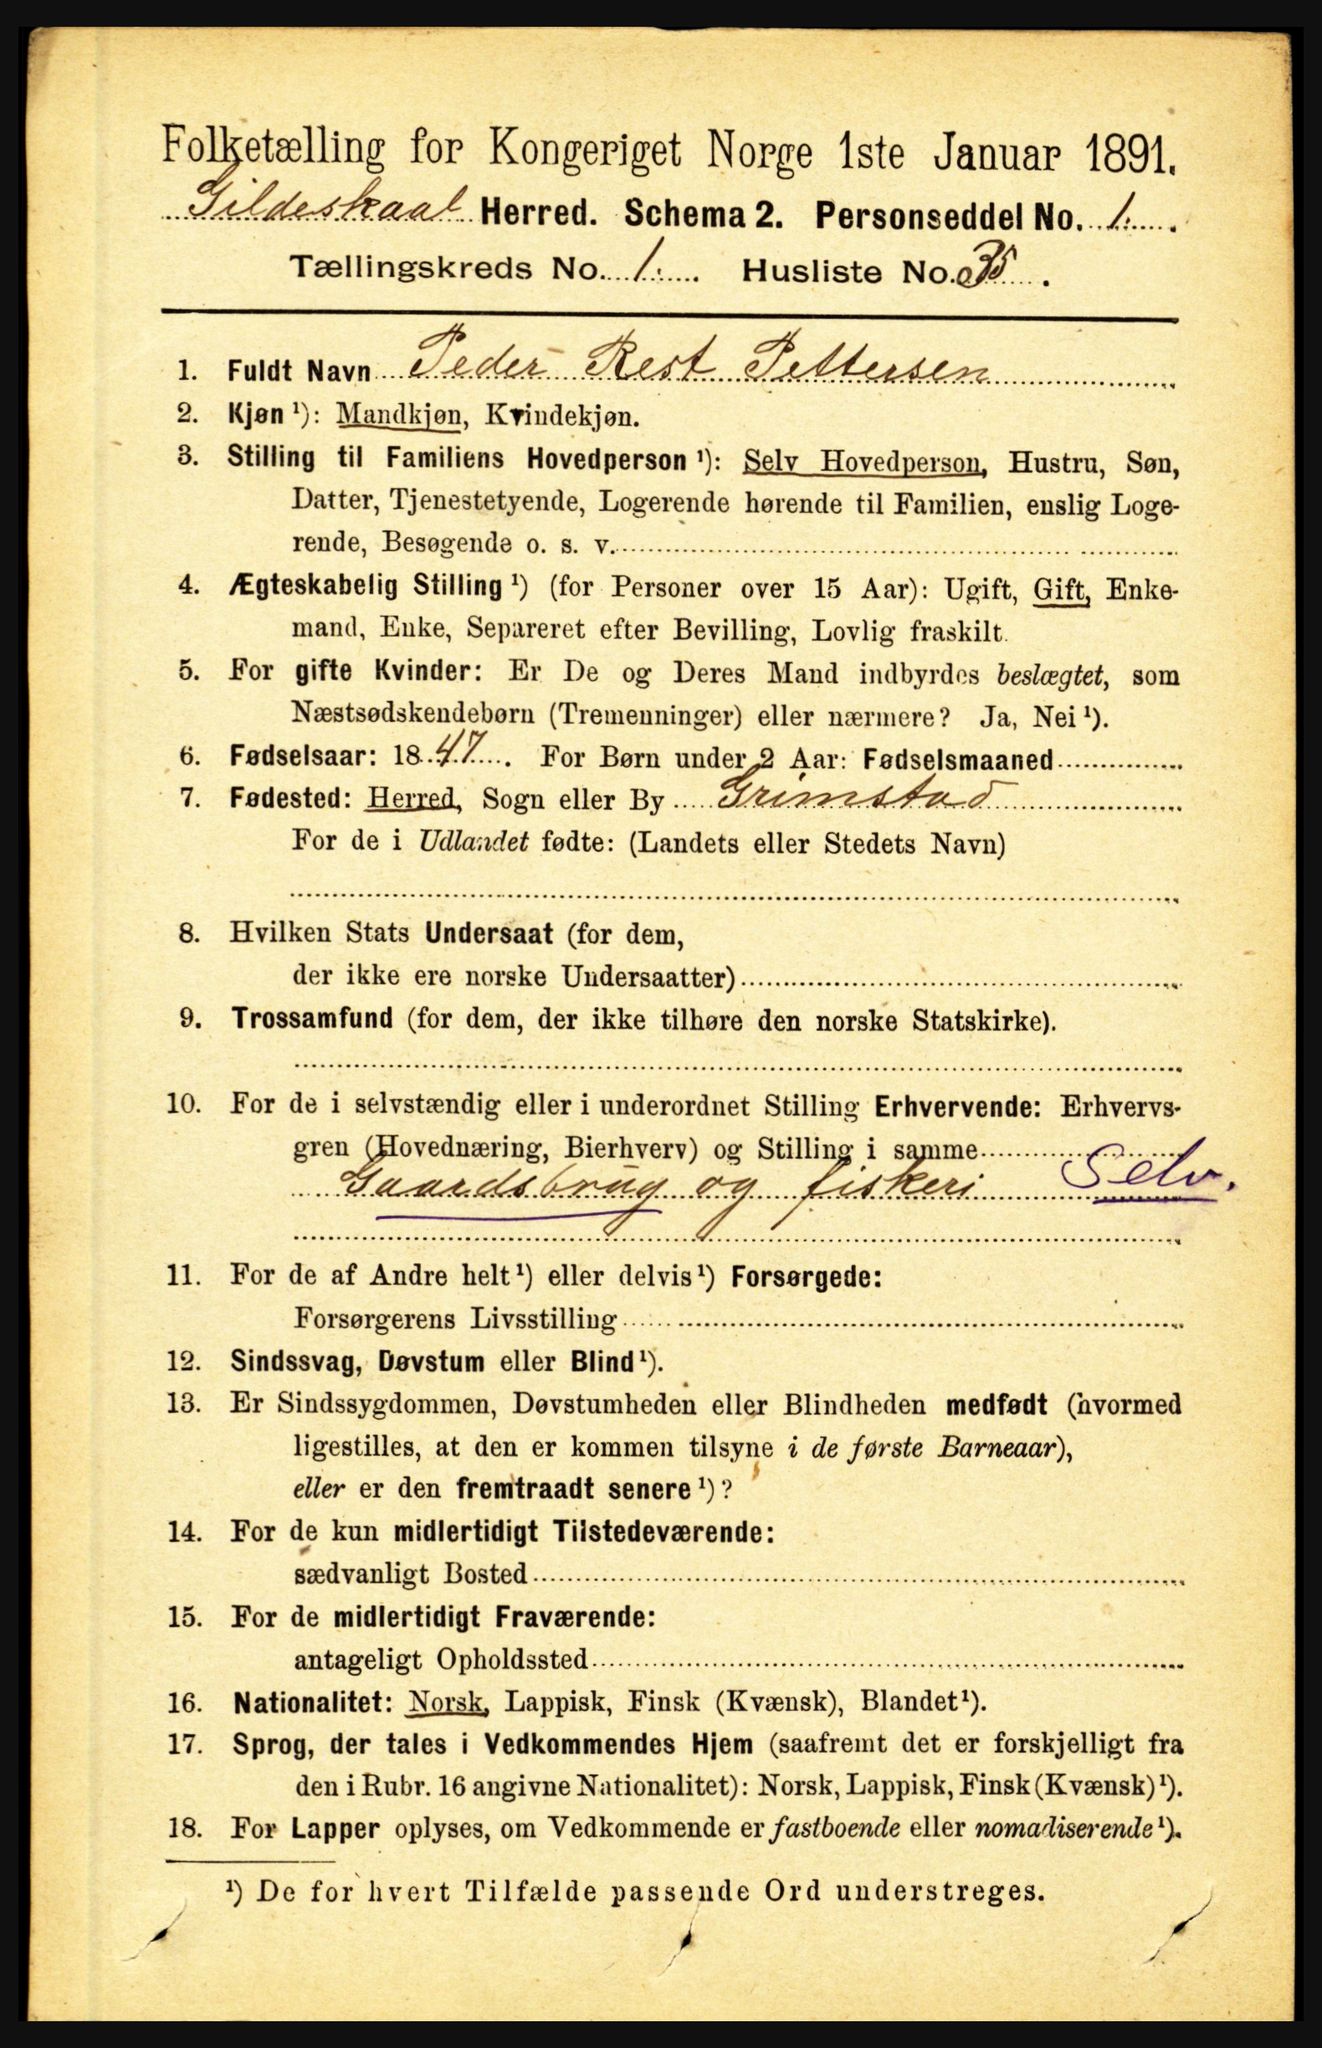 Folketælling for Kongeriget Norge 1ste Januar 1891.
Gildeskaal Herred. Schema 2. Personseddel No. 1.
Tællingskreds No. 1. Husliste No. 35.
1. Fuldt Navn Peder Rest Pettersen
2. Kjøn ¹): Mandkjøn, Kvindekjøn.
3. Stilling til Familiens Hovedperson ¹): Selv Hovedperson, Hustru, Søn,
Datter, Tjenestetyende, Logerende hørende til Familien, enslig Loge-
rende, Besøgende o. s. v.
4. Ægteskabelig Stilling ¹) (for Personer over 15 Aar): Ugift, Gift, Enke-
mand, Enke, Separeret efter Bevilling, Lovlig fraskilt.
5. For gifte Kvinder: Er De og Deres Mand indbyrdes beslægtet, som
Næstsødskendebørn (Tremenninger) eller nærmere? Ja, Nei ¹).
6. Fødselsaar: 1847. For Børn under 2 Aar: Fødselsmaaned
7. Fødested: Herred, Sogn eller By Grimstad
For de i Udlandet fødte: (Landets eller Stedets Navn)
8. Hvilken Stats Undersaat (for dem,
der ikke ere norske Undersaatter)
9. Trossamfund (for dem, der ikke tilhøre den norske Statskirke).
10. For de i selvstændig eller i underordnet Stilling Erhvervende: Erhvervs-
gren (Hovednæring, Bierhverv) og Stilling i samme
Gaardsbrug og fiskeri Selv.
11. For de af Andre helt ¹) eller delvis ¹) Forsørgede:
Forsørgerens Livsstilling
12. Sindssvag, Døvstum eller Blind ¹).
13. Er Sindssygdommen, Døvstumheden eller Blindheden medfødt (hvormed
ligestilles, at den er kommen tilsyne i de første Barneaar),
eller er den fremtraadt senere ¹)?
14. For de kun midlertidigt Tilstedeværende:
sædvanligt Bosted
15. For de midlertidigt Fraværende:
antageligt Opholdssted
16. Nationalitet: Norsk, Lappisk, Finsk (Kvænsk), Blandet ¹).
17. Sprog, der tales i Vedkommendes Hjem (saafremt det er forskjelligt fra
den i Rubr. 16 angivne Nationalitet): Norsk, Lappisk, Finsk (Kvænsk) ¹).
18. For Lapper oplyses, om Vedkommende er fastboende eller nomadiserende ¹).
¹) De for hvert Tilfælde passende Ord understreges.